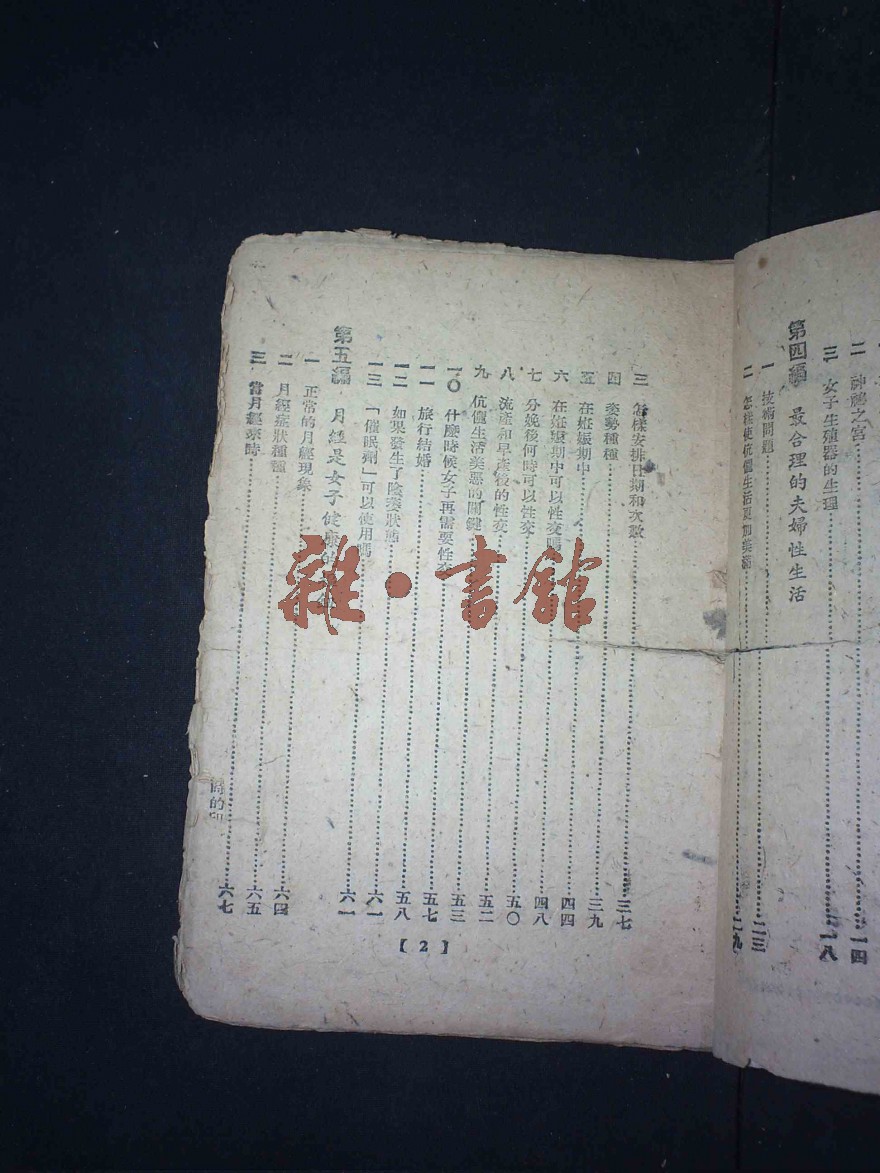 二 神祕之宮……一四
三 女子生殖器的生理……一八
第四編 最合理的夫婦性生活
一 技術問題……二三
二 怎樣使伉儷生活更加美滿……二九
三 怎樣安排日期和次數……三七
四 姿勢種種……三九
五 在妊娠期中……四四
六 在妊娠期中可以性交嗎……四八
七 分娩後何時可以性交……五〇
八 流產和早產後的性交……五二
九 伉儷生活美惡的關鍵……五三
一〇 什麼時候女子再需要性交……五七
一一 旅行結婚……五八
一二 如果發生了陰萎狀態……六一
一三 「催眠劑」可以使用嗎……六一
第五編 月經是女子健康的
一 正常的月經現象……六四
二 月經症狀種種……六五
三 當月經來時……六七
【2】
雜·書館